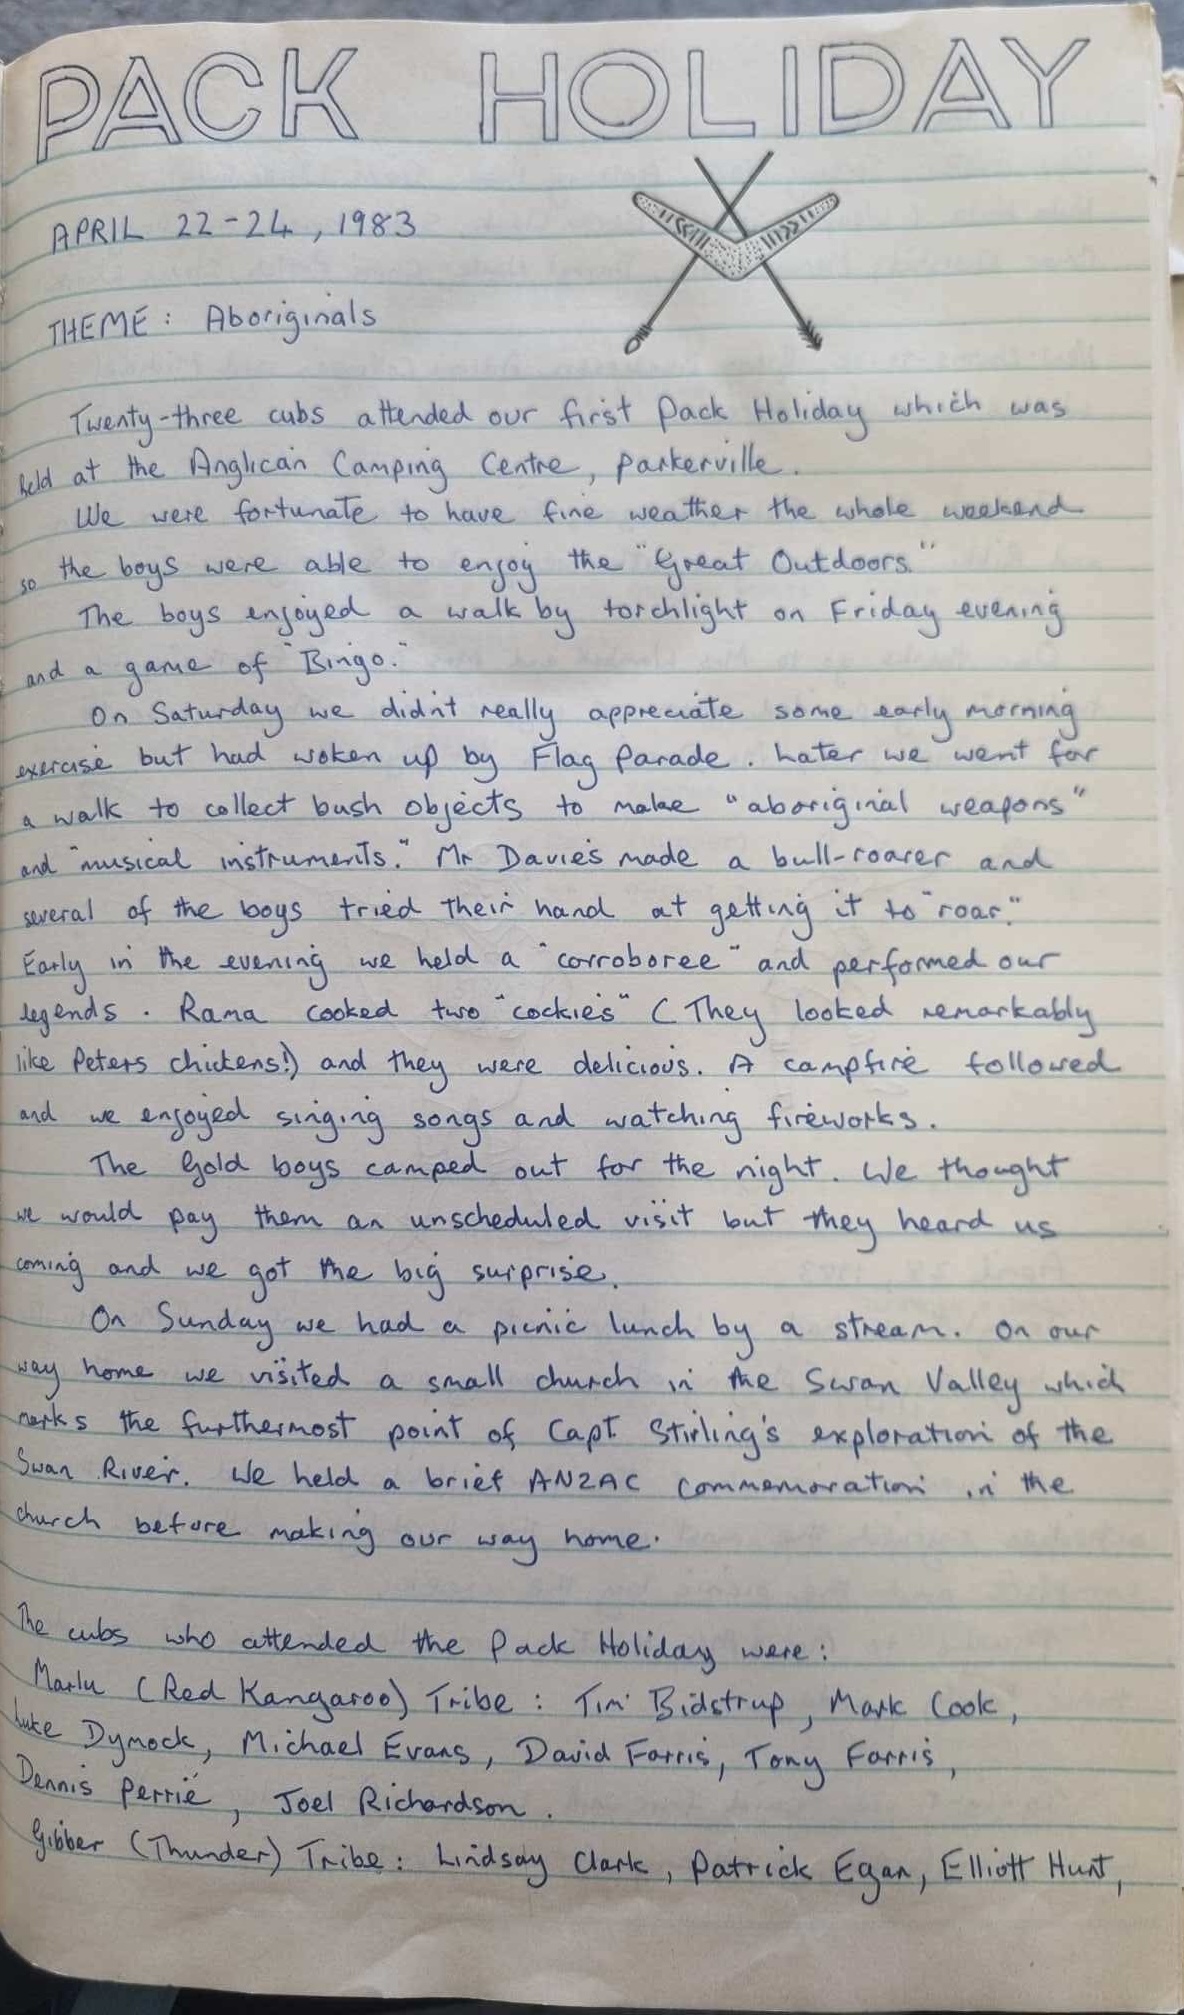 PACK HOLIDAY
APRIL 22-24, 1983
THEME: Aboriginals
Twenty-three cubs attended our first Pack Holiday which was
held at the Anglican Camping Centre, Parkerville.
We were fortunate to have fine weather the whole weekend
so the boys were able to enjoy the "Great Outdoors."
The boys enjoyed a walk by torchlight on Friday evening
and a game of "Bingo."
On Saturday we didn't really appreciate some early morning
exercise but had woken up by Flag Parade. Later we went for
a walk to collect bush objects to make "aboriginal weapons"
and "musical instruments." Mr Davies made a bull-roarer and
several of the boys tried their hand at getting it to "roar."
Early in the evening we held a "corroboree" and performed our
legends. Rama cooked two "cockies" (They looked remarkably
like Peters chickens!) and they were delicious. A campfire followed
and we enjoyed singing songs and watching fireworks.
The Gold boys camped out for the night. We thought
we would pay them an unscheduled visit but they heard us
coming and we got the big surprise.
On Sunday we had a picnic lunch by a stream. On our
way home we visited a small church in the Swan Valley which
marks the furthermost point of Capt Stirling's exploration of the
Swan River. We held a brief ANZAC commemoration in the
church before making our way home.
The cubs who attended the Pack Holiday were:
Marlu (Red Kangaroo) Tribe: Tim Bidstrup, Mark Cook,
Luke Dymock, Michael Evans, David Farris, Tony Farris,
Dennis Perrie, Joel Richardson.
Gibber (Thunder) Tribe: Lindsay Clark, Patrick Egan, Elliott Hunt,